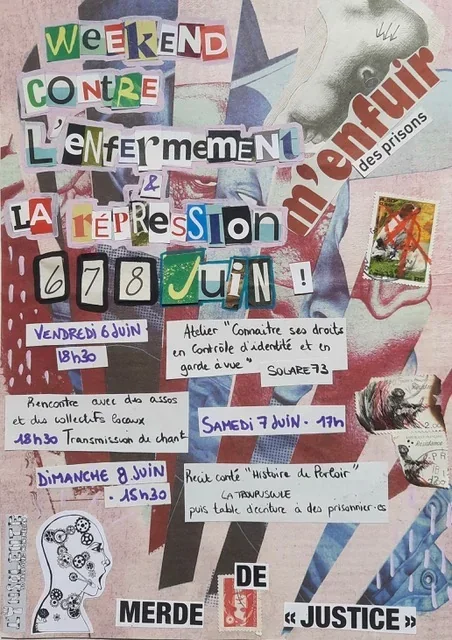 WEEKEND
CONTRE
L'ENFERMEMENT
&
LA RÉPRESSION
m'enfuir
des prisons
6 7 8 JUIN !
VENDREDI 6 JUIN ·
18h30
Atelier "Connaître ses droits
en Contrôle d'identité et en
garde à vue"
SOLARE 73
Rencontre avec des assos
et des collectifs locaux
18h30 Transmission du chant
SAMEDI 7 JUIN · 17h
DIMANCHE 8 JUIN
· 15h30
Récit conté "Histoire de Parloir"
puis table d'écriture à des prisonnier·es
MERDE
DE
« JUSTICE »